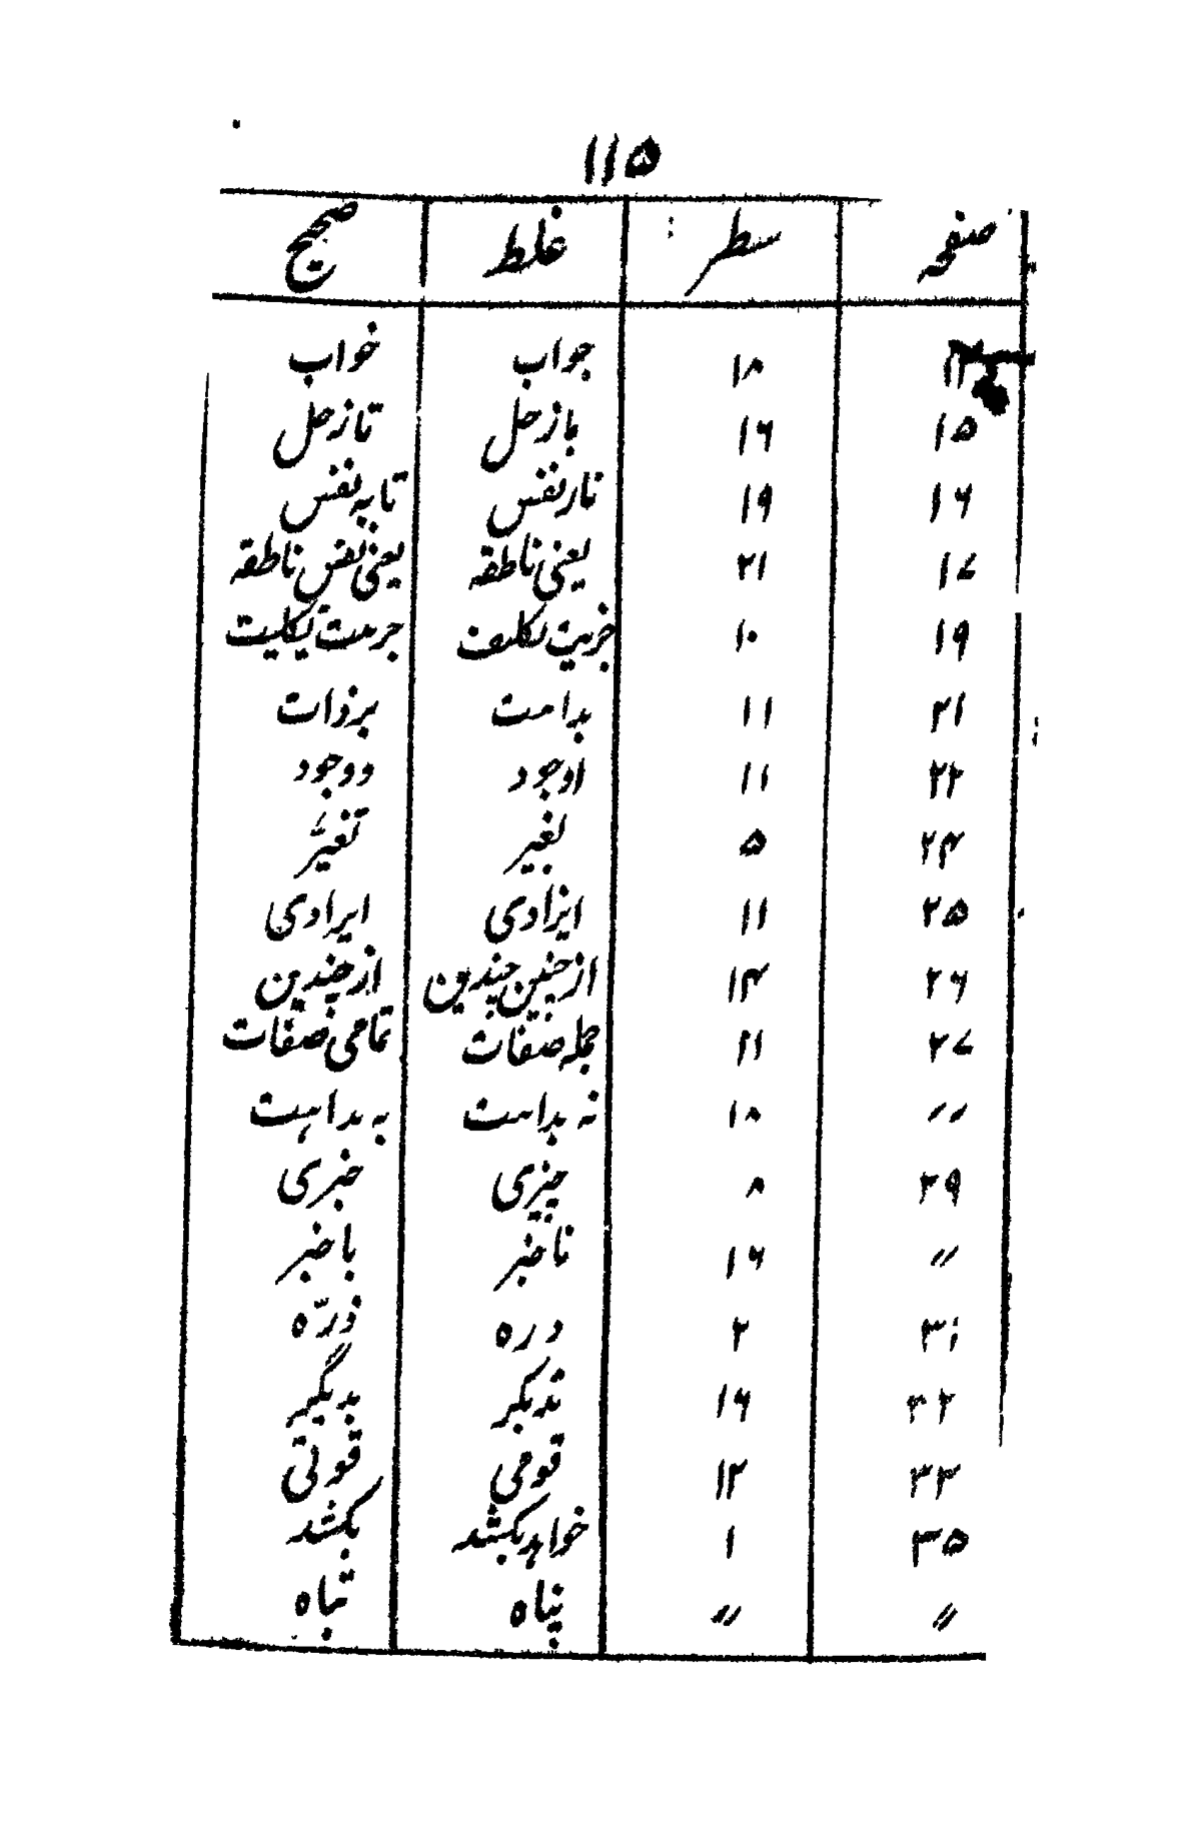 ۱۱۵
صفحه سطر غلط صحیح
۱۸ جواب خواب
۱۵ ۱۶ بازحل تازحل
۱۶ ۱۹ نارنفس تابه نفس
۱۷ ۲۱ یعنی ناطقه یعنی نفس ناطقه
۱۹ ۱۰
۲۱ ۱۱ بدامت برذات
۲۲ ۱۱ اوجود ووجود
۲۴ ۵ لغیر تغیّر
۲۵ ۱۱ ایزادی ایرادی
۲۶ ۱۴ از چنین چندین از چندین
۲۷ ۲۱ جمله صفات تمامی صفات
〃 ۱۸ نه بدامت به بداهت
۲۹ ۸ چیزی خبری
〃 ۱۶ ناخبر باخبر
۳۱ ۲ دره ذرّه
۳۲ ۱۶ تدبکر بدیگر
۳۳ ۱۲ قومی قوتی
۳۵ ۱ خواهد بکشد بکشد
〃 〃 پناه تباه